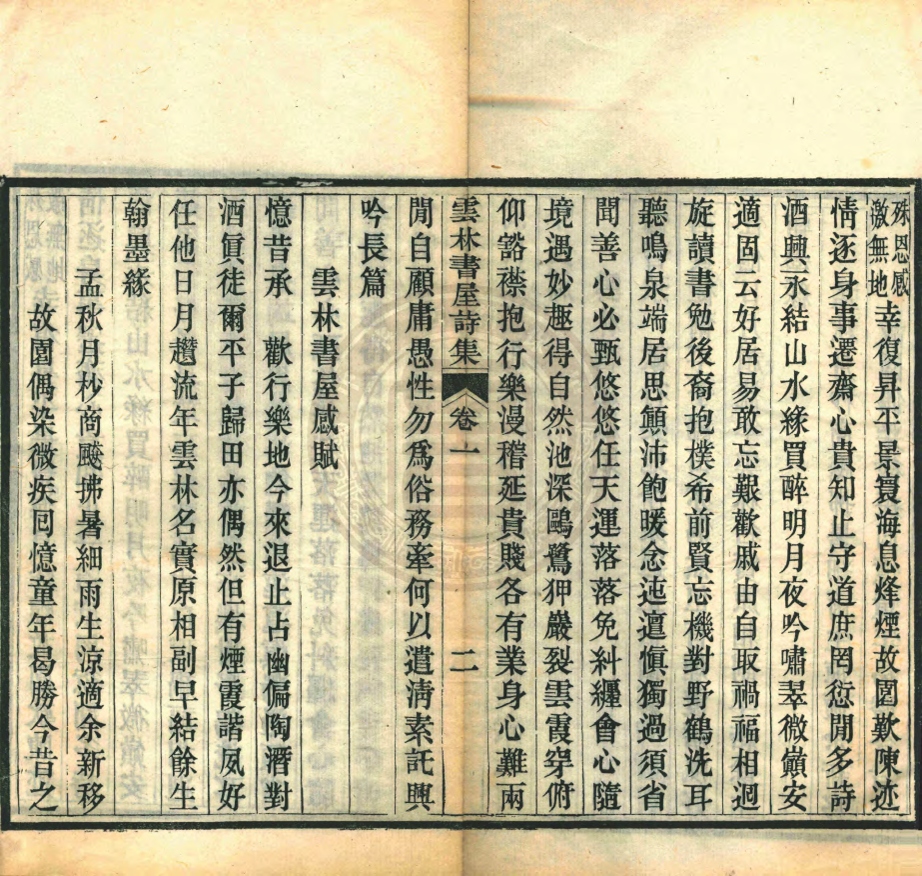 殊恩感
激無地
幸復昇平景寰海息烽煙故園歎陳迹
情逐身事遷齋心貴知止守道庶罔愆閒多詩
酒興永結山水緣買醉明月夜吟嘯翠微巔安
適固云好居易敢忘艱歡戚由自取禍福相迴
旋讀書勉後裔抱樸希前賢忘機對野鶴洗耳
聽鳴泉端居思顛沛飽暖念迍邅愼獨過須省
聞善心必甄悠悠任天運落落免糾纏會心隨
境遇妙趣得自然池深鷗鷺狎巖裂雲霞穿俯
仰豁襟抱行樂漫稽延貴賤各有業身心難兩
雲林書屋詩集 卷一 二
閒自顧庸愚性勿爲俗務牽何以遣淸素託興
吟長篇
雲林書屋感賦
憶昔承 歡行樂地今來退止占幽偏陶潛對
酒眞徒爾平子歸田亦偶然但有煙霞諧夙好
任他日月趲流年雲林名實原相副早結餘生
翰墨緣
孟秋月杪商飈拂暑細雨生涼適余新移
故園偶染微疾囘憶童年曷勝今昔之